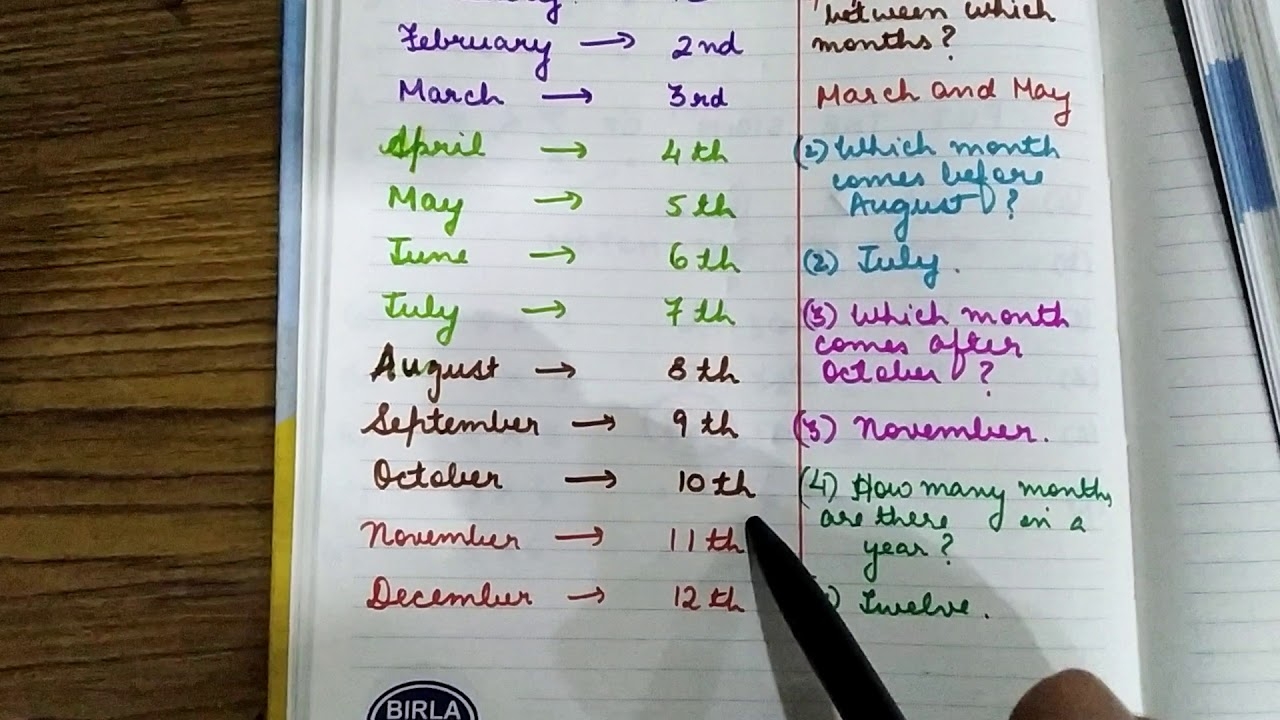 February → 2nd
March → 3rd
April → 4th
May → 5th
June → 6th
July → 7th
August → 8th
September → 9th
October → 10th
November → 11th
December → 12th
between which
months?
March and May
(2) Which month
comes before
August?
(2) July.
(3) Which month
comes after
October?
(3) November.
(4) How many months
are there in a
year?
Twelve.
BIRLA